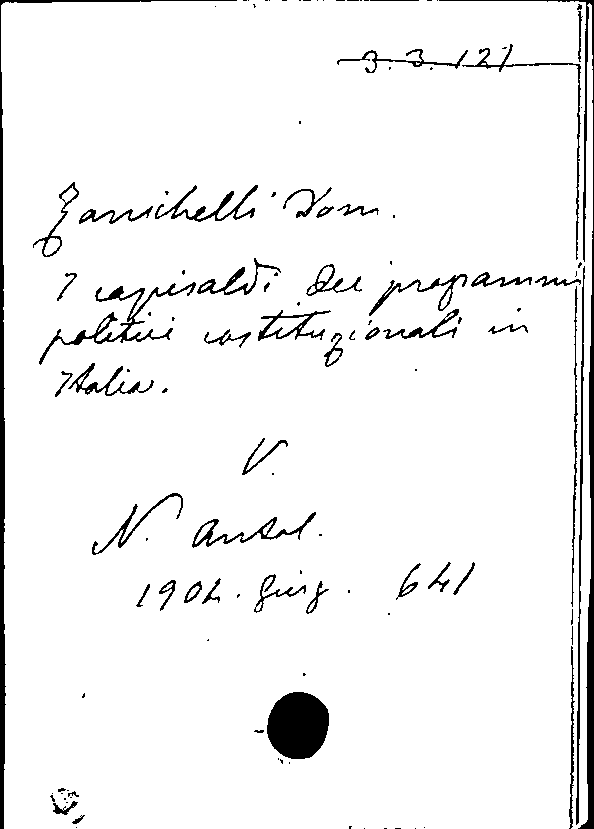 3.3.121
Zanichelli Dom.
I capisaldi dei programmi
politici costituzionali in
Italia.
V.
N. Antol.
1904. giug. 641